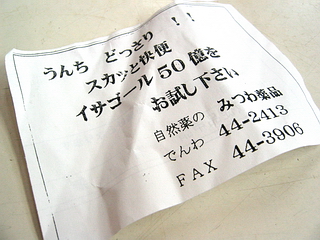 うんち どっさり !!
スカッと快便
イサゴール50億を
お試し下さい
自然薬の みつわ薬品
でんわ 44-2413
FAX 44-3906